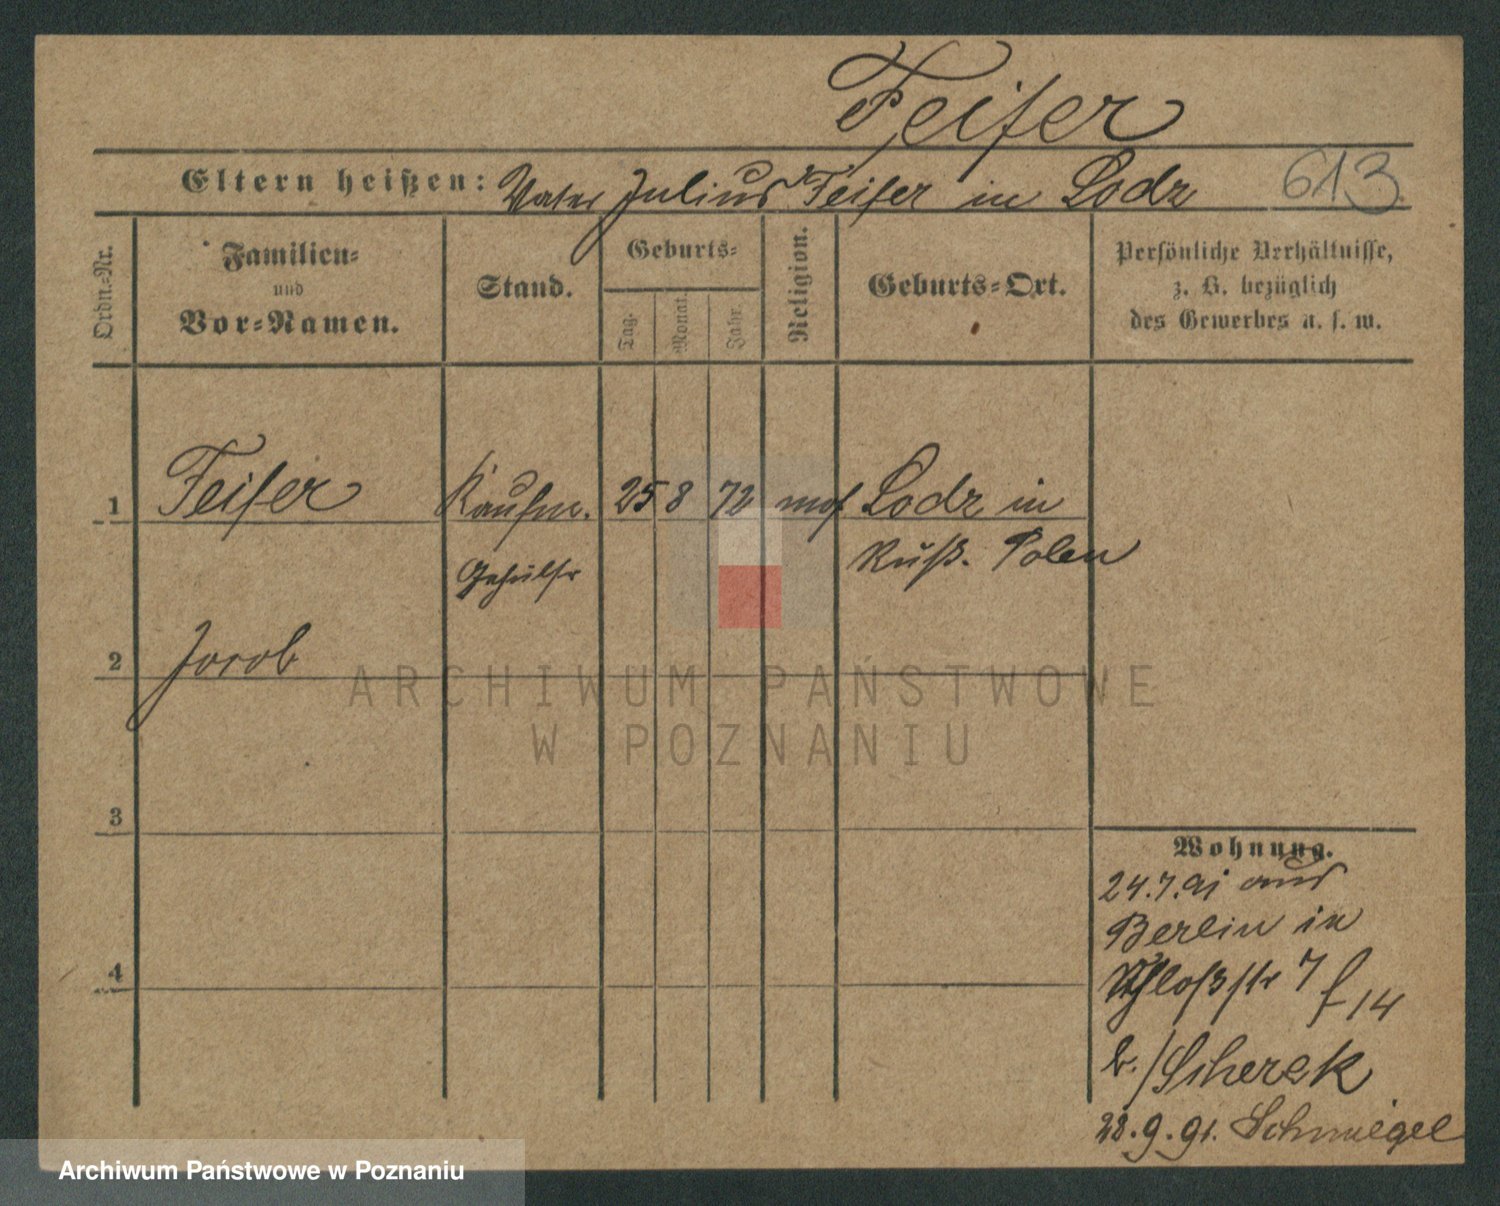 Feifer
Eltern heißen: Vater Julius Feifer in Lodz 613
Ordn.-Nr.
Familien-
und
Vor-Namen.
Stand.
Geburts-
Tag.
Monat.
Jahr.
Religion.
Geburts-Ort.
Persönliche Verhältnisse,
z. B. bezüglich
des Gewerbes u. s. w.
1 Feifer Kaufm. 25 8 72 mos Lodz in
Gehülfe Russ. Polen
2 Jacob
3
4
Wohnung.
24.7.91 aus
Berlin in
Schloßstr 7 f 14
b./Scherek
28.9.91. Schmiegel
ARCHIWUM PAŃSTWOWE
W POZNANIU
Archiwum Państwowe w Poznaniu